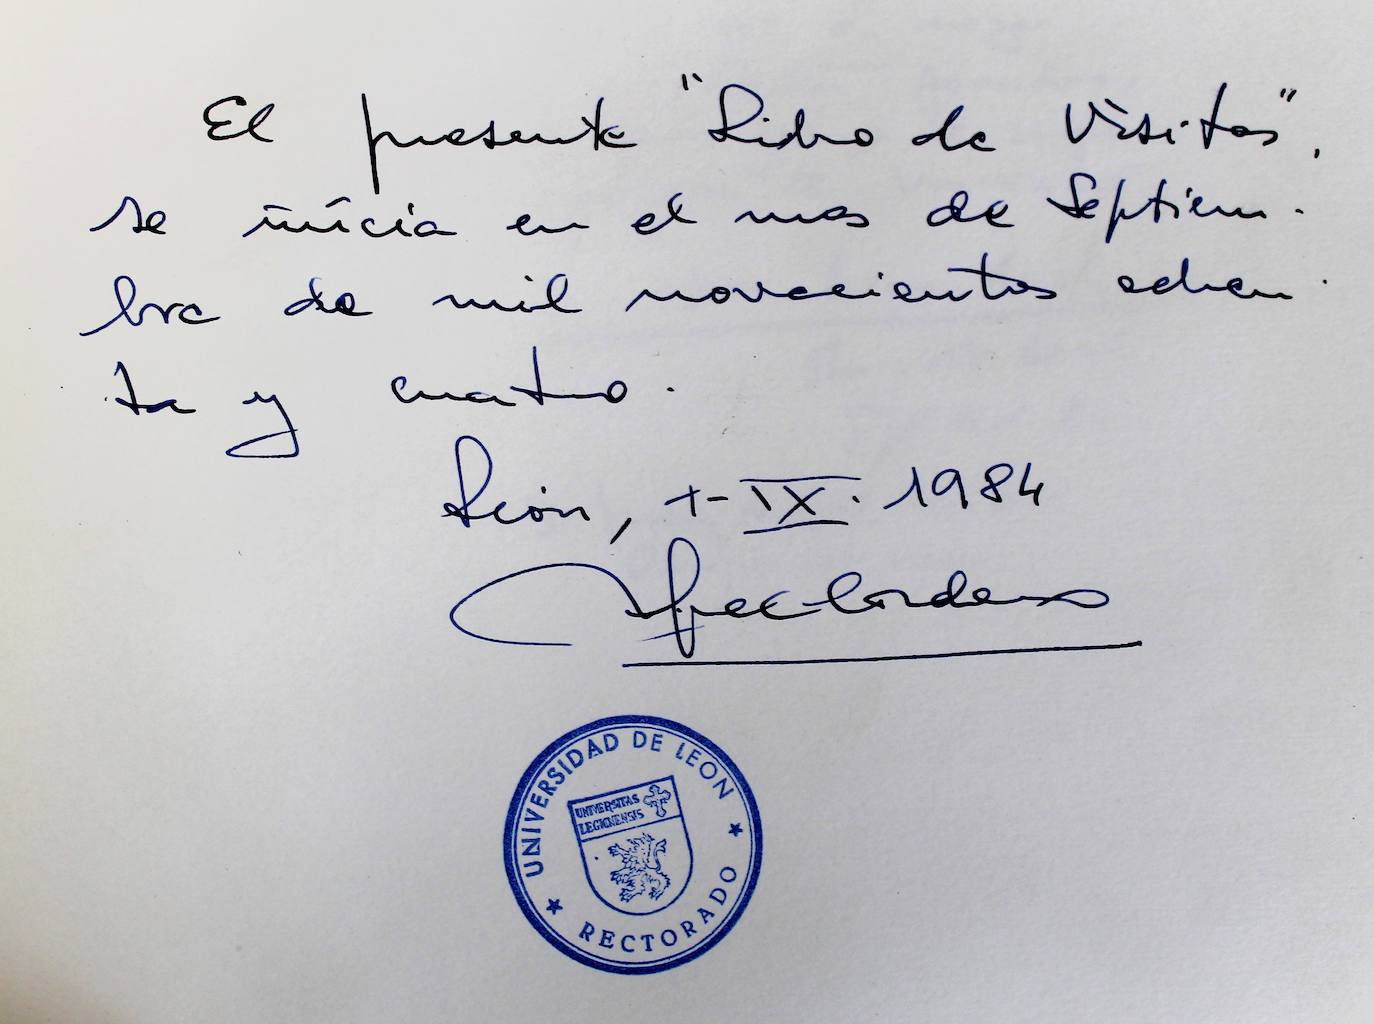 El presente "Libro de Visitas",
se inicia en el mes de Septiem-
bre de mil novecientos ochen-
ta y cuatro.
León, IX. 1984
UNIVERSIDAD DE LEON
UNIVERSITAS
LEGIONENSIS
RECTORADO